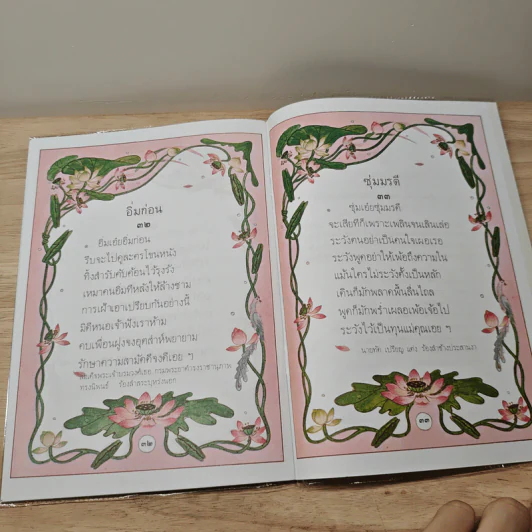 อิ่มก่อน
๓๒
อิ่มเอ๋ยอิ่มก่อน
รีบจะไปดูละครโขนหนัง
ทิ้งสำรับคับค้อนไว้รุงรัง
เหมาคนอิ่มทีหลังให้ล้างชาม
การเฝ้าเอาเปรียบกันอย่างนี้
มิดีหนอเจ้าฟังเราห้าม
คบเพื่อนฝูงจงอุตส่าห์พยายาม
รักษาความสามัคคีจงดีเอย ฯ
สมเด็จพระเจ้าบรมวงศ์เธอ กรมพระยาดำรงราชานุภาพ
ทรงนิพนธ์
๓๒
ซุ่มมรดี
๓๓
ซุ่มเอ๋ยซุ่มมรดี
จะเสียทีก็เพราะเพลินจนเสินเล่อ
ระวังตนอย่าเป็นคนใจเผอเรอ
ระวังพูดอย่าให้เพ้อถึงความใน
แม้นใครไม่ระวังตั้งเป็นหลัก
เดินก็มักพลาดพื้นลื่นไถล
พูดก็มักพร่ำเผลอเพ้อเจ้อไป
ระวังไว้เป็นทุนแม่คุณเอย ฯ
นายทัด เปรียญ แต่ง
๓๓